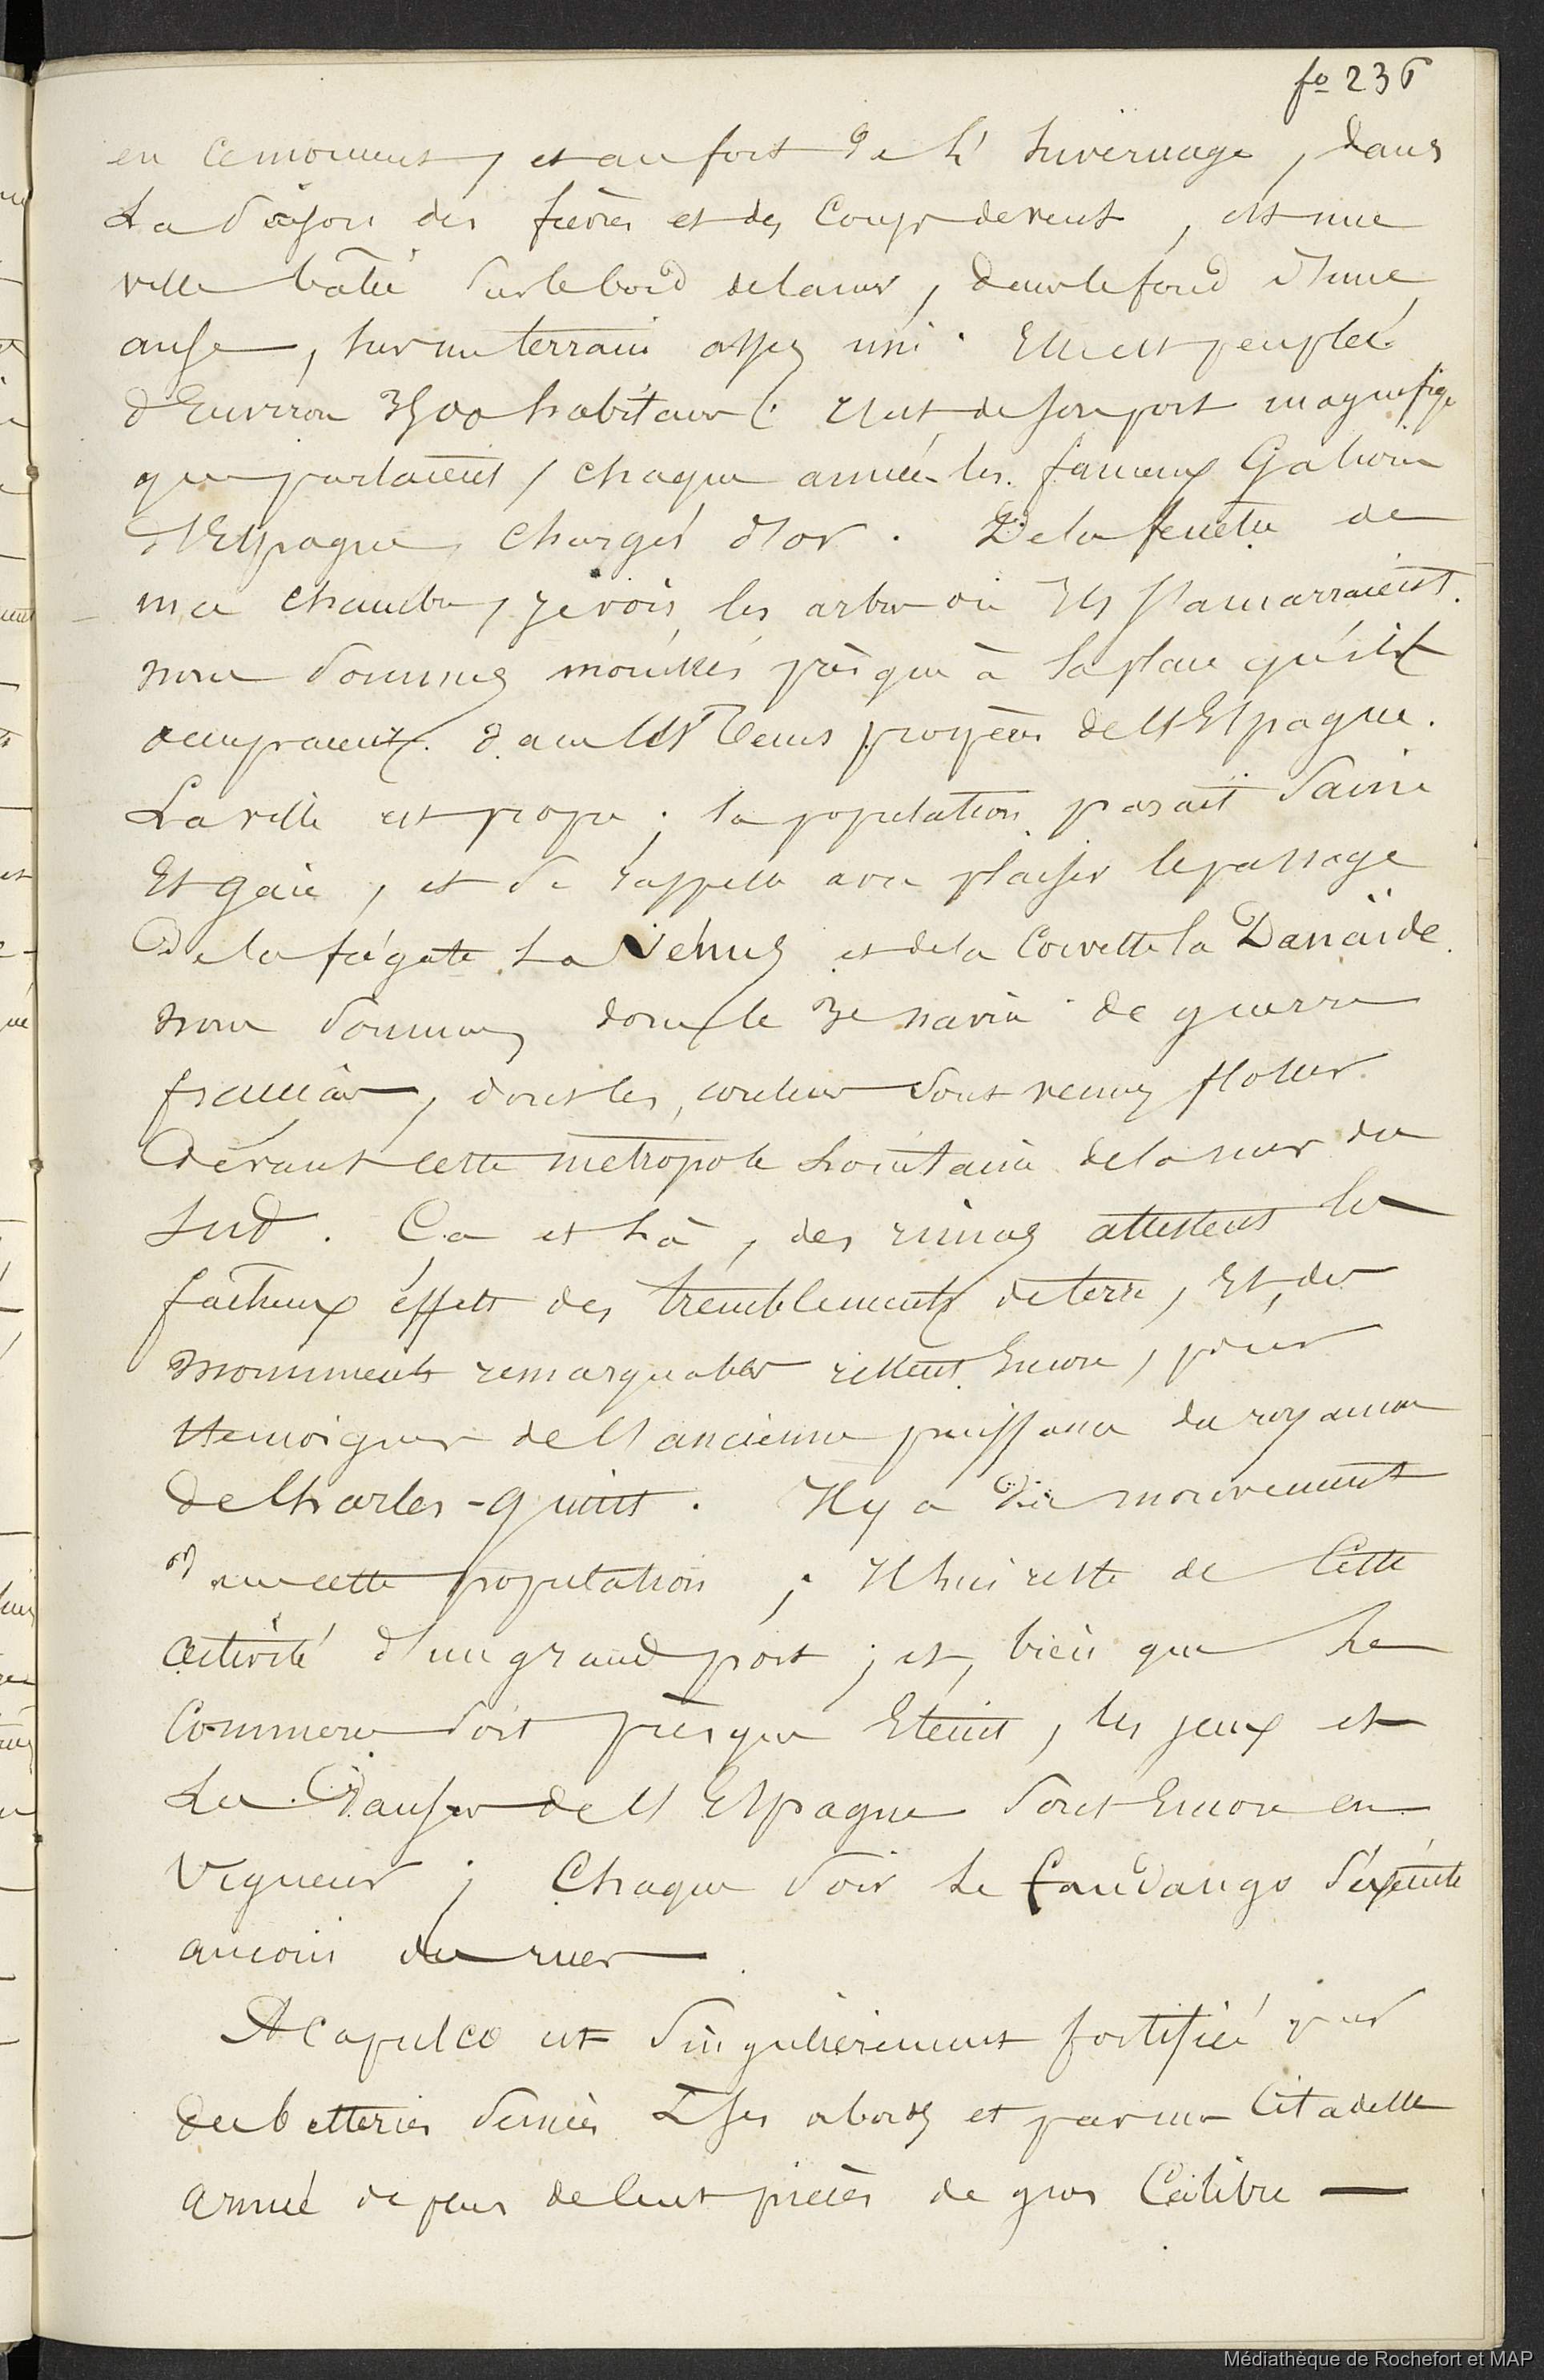 fo 236
en ce moment, et au fort de l'hivernage, dans
la saison des fièvres et des coups de vent, est une
ville batie sur le bord de la mer, dans le fond d'une
anse, sur un terrain assez uni. Elle est peuplée
d'Environ 3500 habitans. C'est de son port magnifiqe
que partaient, chaque année les fameux Galions
d'Espagne, chargés d'or. De la fenêtre de
ma chambre, je vois les arbres où Ils s'amarraient.
nous sommes mouillés près que à la place qu'ils
occupaient dans les Tems prospères de l'Espagne.
La ville est propre ; la population parait saine
Et gaie, et se rappelle avec plaisir le passage
De la frégate la Vénus et de la Corvette la Danaïde.
nous sommes donc le 3e navire de guerre
français, dont les couleurs sont venues flotter
Devant cette métropole lointaine de la mer du
Sud. Ca et là, des ruines attestent les
facheux éffets des tremblements de terre, Et, des
monuments remarquables restent Encore, pour
témoigner de l'ancienne puissance du royaume
de Charles-quint. Il y a du mouvement
cette population ; Il lui reste de Cette
activité d'un grand port ; et, bien que le
Commerce soit près que Eteint, les jeux et
Les Danses de l'Espagne sont Encore en
vigueur ; Chaque soir le fandango s'éxécute
au coin des rues
Acapulco est singulièrement fortifié par
des batteries semées à ses abords et par une Citadelle
armée de plus de cent pièces de gros Calibre —
Médiathèque de Rochefort et MAP